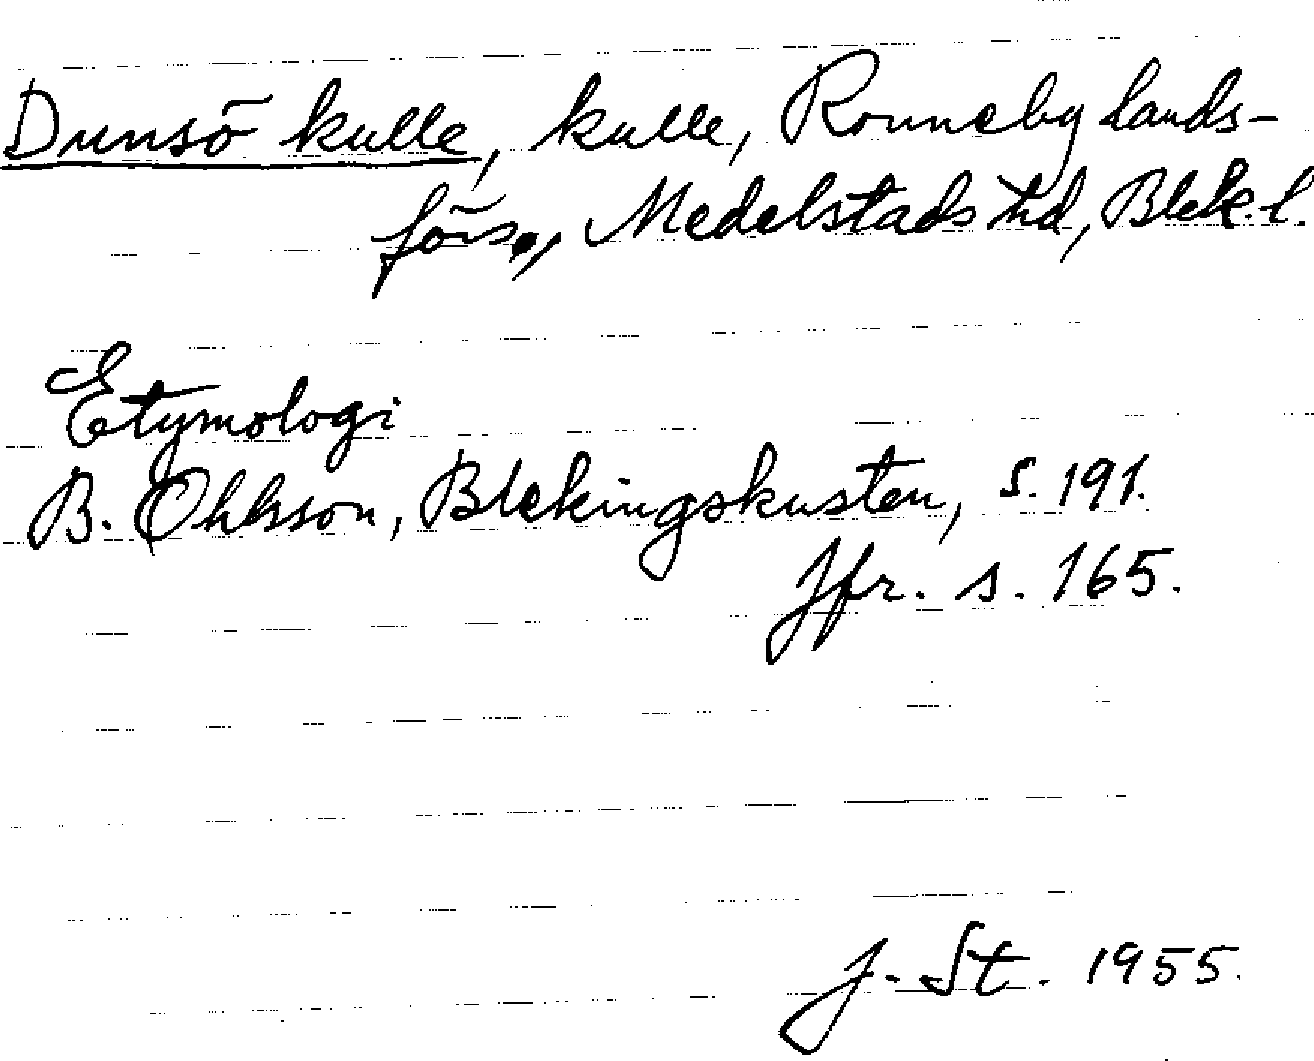 Dunsö kulle, kulle, Ronneby lands-
förs., Medelstads hd, Blek. l.
Etymologi
B. Ohlsson, Blekingskusten, s. 191.
Jfr. s. 165.
J. St. 1955.